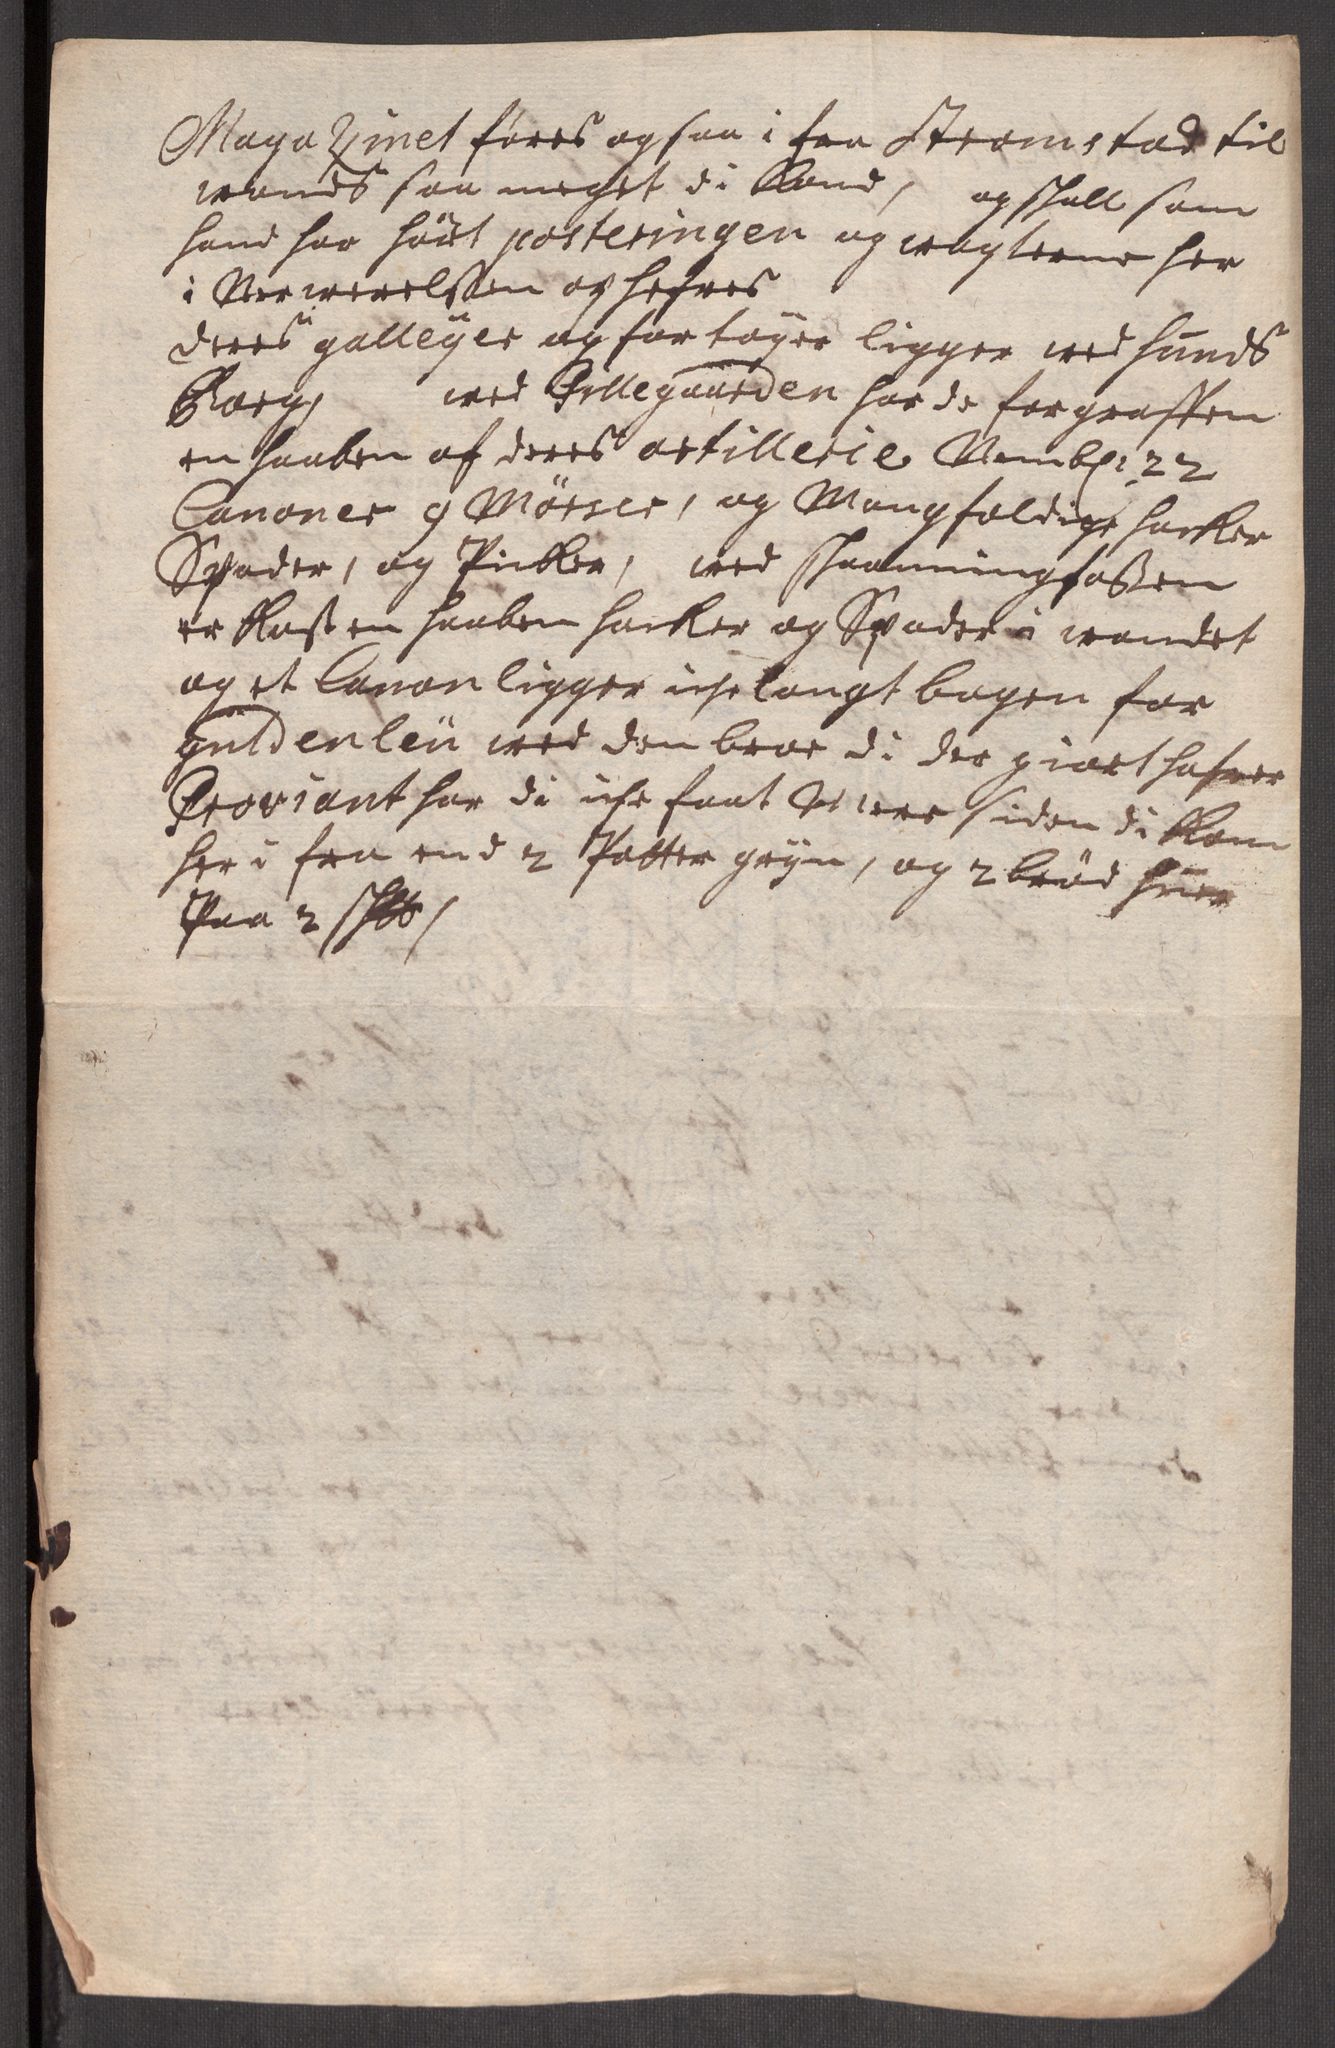 Magazinet føres og saa i fra Strømstad til
wands saa meget di kand, og skall som
hand har høit posteringen og wagterne her
i Nerwerelssen ophefwes
deres galleÿer og fartøyer ligger wed hunds
Borg, wed Pillegaarden har de forgraffven
en haaben af deres artillerie Nembl: 22
Canoner 9 Mørser, og Mangfoldige hacker
Spader, og Picker, wed schaaningfossen
er kast en haaben hacker og Spader i wandet
og et Canon ligger iche langt bagen for
guldenleü wed den broe di der giort hafwer
Proviant har di iche faat Mere siden di kom
her i fra end 2 Potter gryn, og 2 brød hwer
Paa 2